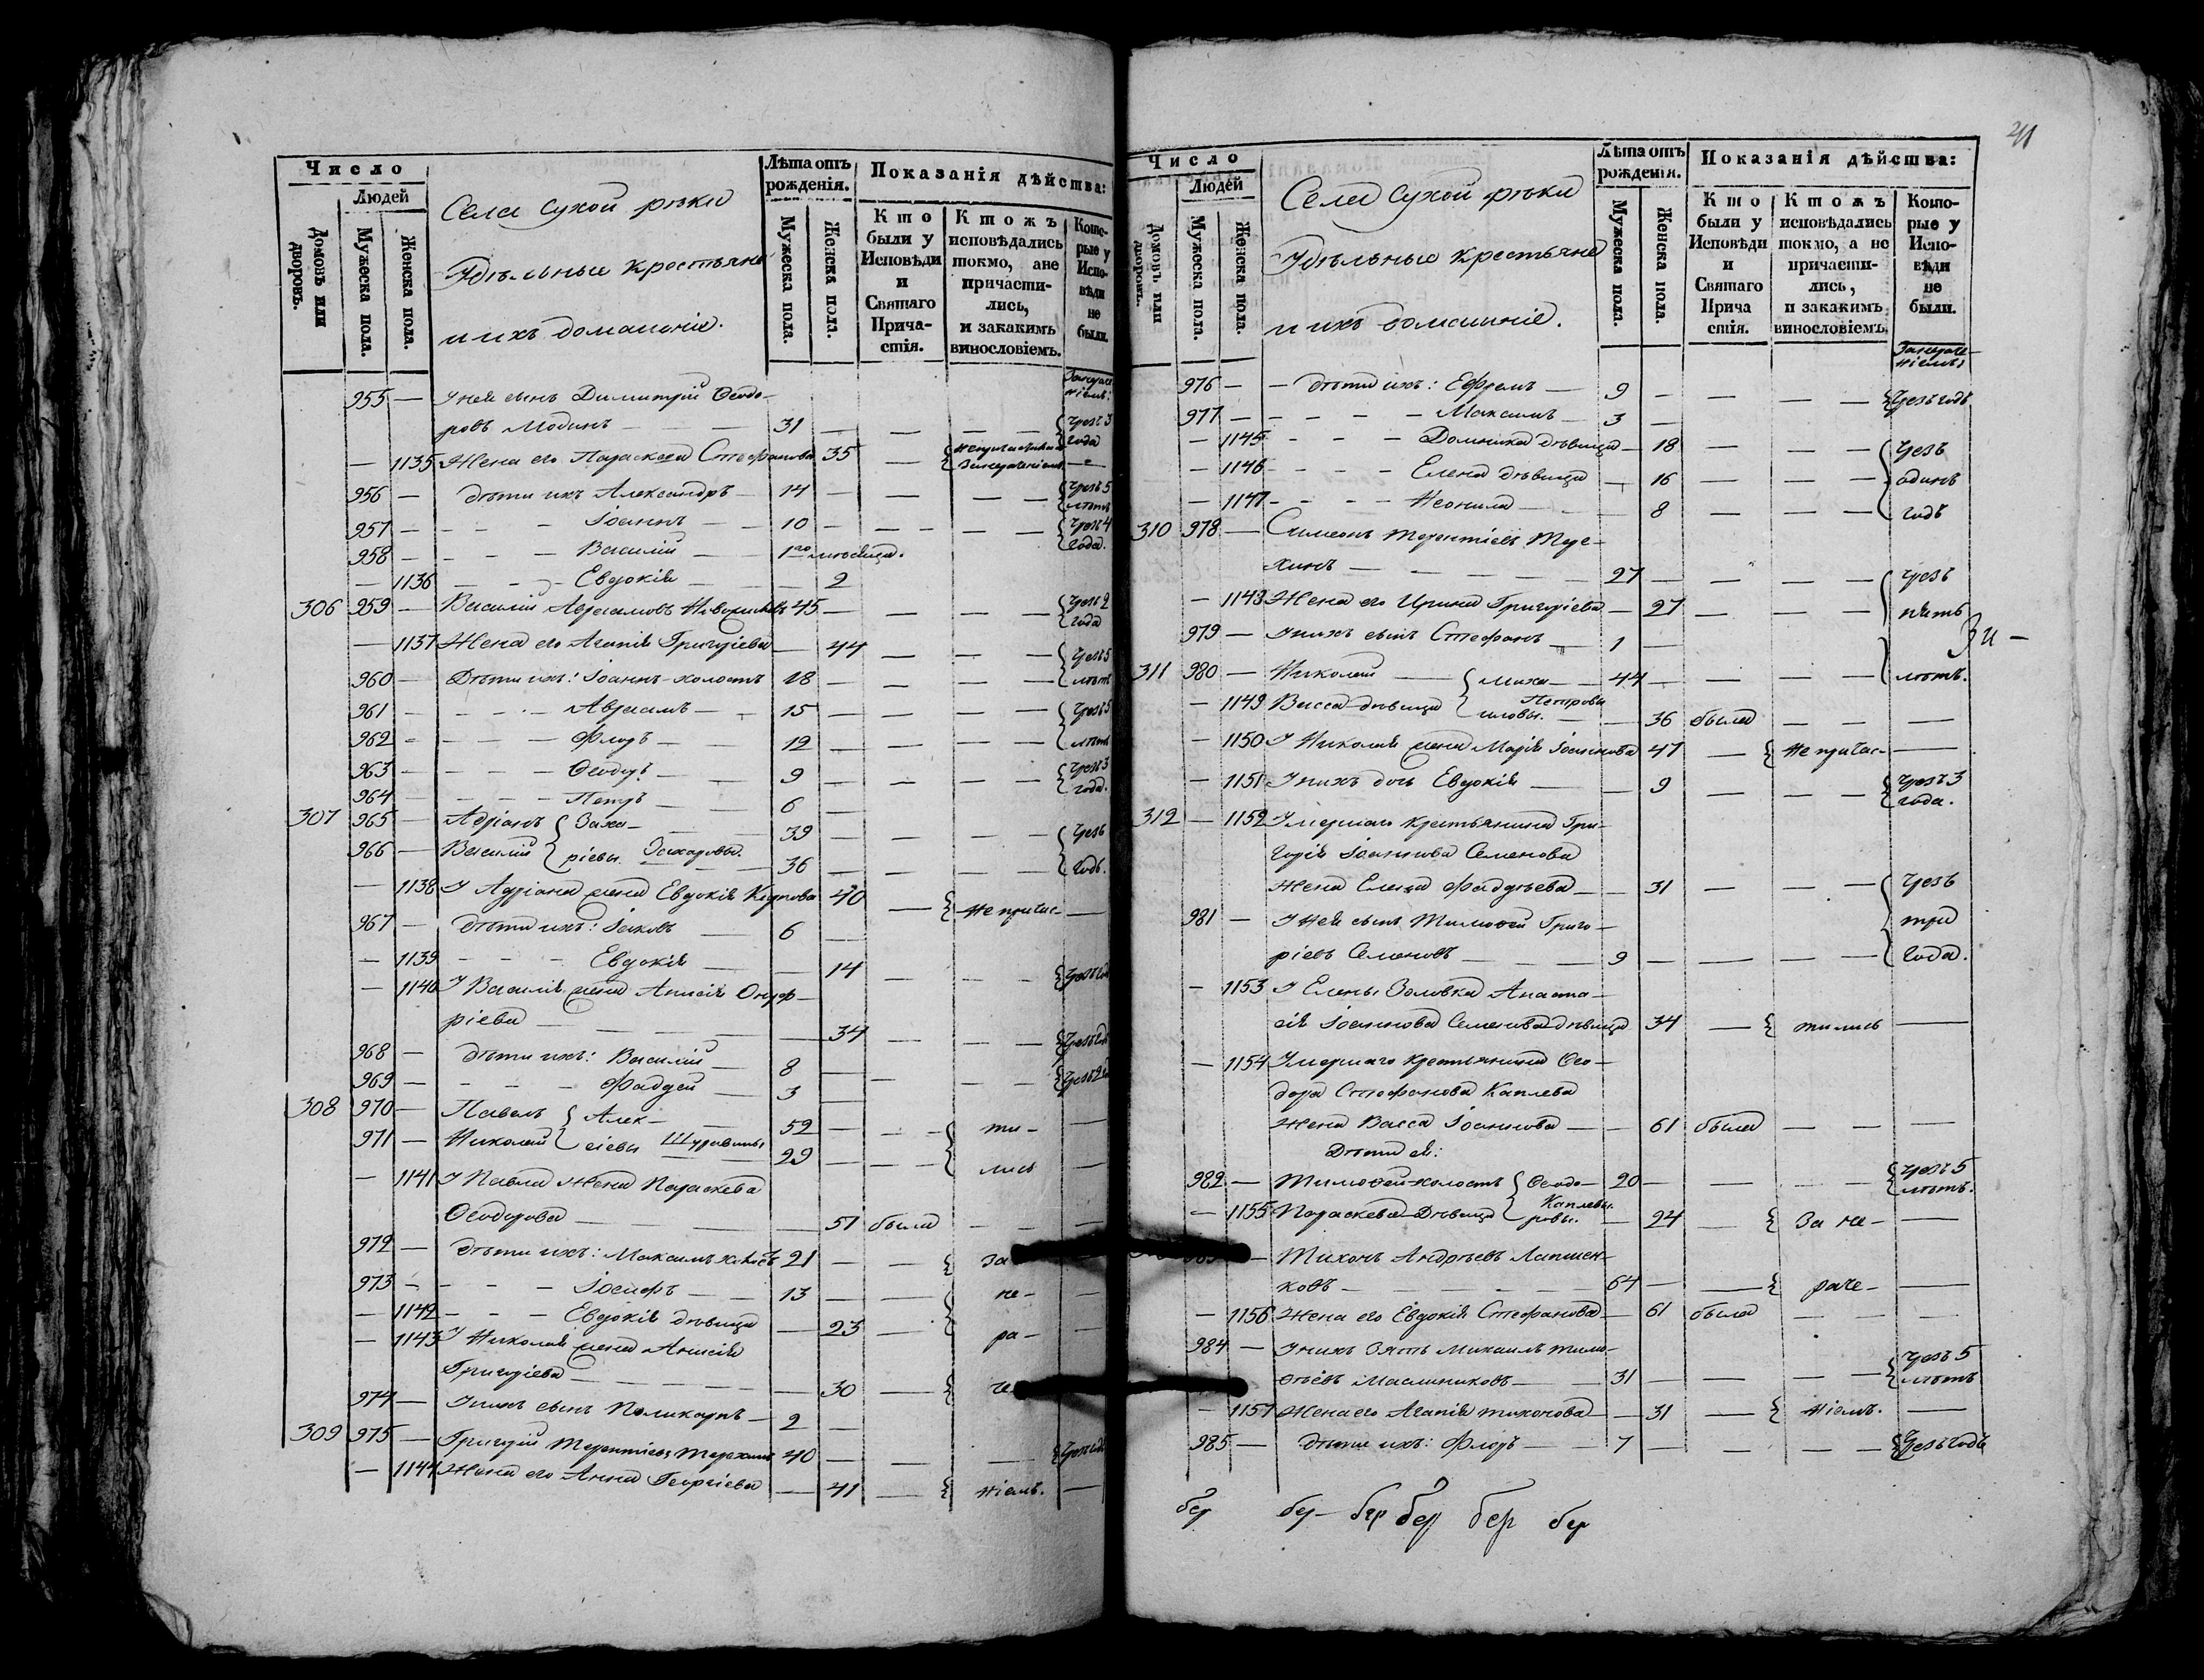 Число
Людей
Домовъ или дворовъ.
Мужеска пола.
Женска пола.
Села Сухой рѣки
Удѣльные крестьяне
и ихъ домашніе.
Лѣта отъ рожденія.
Мужеска пола.
Женска пола.
Показанія дѣйства:
Кто были у Исповѣди и Святаго Причастія.
Ктожъ исповѣдались токмо, а не причастились, и закакимъ винословіемъ.
Которые у Исповѣди не были.
955 — У ней сынъ Димитрій Ѳеодо-
ровъ Модинъ — 31 — — — чрезъ 3 года
— 1135 Жена его Параскева Стефанова 35 —
956 — Дѣти ихъ Александръ — 14 — — — чрезъ 5 лѣтъ
957 — — Іоаннъ — 10 — — — чрезъ 4 года.
958 — — Василій — 1го мѣсяца.
— 1136 — Евдокія — 2
306 959 — Василій Авраамовъ 45 — — — чрезъ 2 года
— 1137 Жена его Агапія Григоріева — 44 — — чрезъ 5 лѣтъ
960 — Дѣти ихъ: Іоаннъ-холостъ 18 — — —
961 — — Авраамъ — 15 — — — чрезъ 5 лѣтъ
962 — — Флоръ — 12 — — —
963 — — Ѳеодоръ — 9 — — — чрезъ 3 года.
964 — — Петръ — 6 —
307 965 — Адріанъ { Заха- 39 — — — чрезъ
966 — Василій { ріевы Захаровы. 36 — — — годъ.
— 1138 У Адріана жена Евдокія Карпова 40 — { не причас- —
967 — Дѣти ихъ: Іаковъ — 6 —
— 1139 — Евдокія — 14 — — чрезъ годъ
— 1140 У Василія жена Анисія Онуф-
ріева — 34 — — чрезъ годъ
968 — Дѣти ихъ: Василій — 8 —
969 — — Фаддей — 3 —
308 970 — Павелъ { Алек- 52 — — ти- —
971 — Николай { сіевы 29 — — лись —
— 1141 У Павла жена Параскева
Ѳеодорова — 51 была — —
972 — Дѣти ихъ: Максимъ холостъ 21 — — { за
973 — — Іосифъ — 13 — — не- —
— 1142 — Евдокія дѣвица — 23 — { ра- —
— 1143 У Николая жена Анисія
Григоріева — 30 — {
974 — У нихъ сынъ Поликарпъ — 2 —
309 975 — Григорій Терентіевъ Терехинъ 40 — — — чрезъ годъ
— 1144 Жена его Анна Георгіева — 41 — { ніемъ. —
Число
Людей
Домовъ или дворовъ.
Мужеска пола.
Женска пола.
Села Сухой рѣки
Удѣльные крестьяне
и ихъ домашніе.
Лѣта отъ рожденія.
Мужеска пола.
Женска пола.
Показанія дѣйства:
Кто были у Исповѣди и Святаго Причастія.
Ктожъ исповѣдались токмо, а не причастились, и закакимъ винословіемъ.
Которые у Исповѣди не были.
976 — — Дѣти ихъ: Ефремъ — 9 — — — чрезъ годъ
977 — — Максимъ — 3 —
— 1145 — Домника дѣвица — 18 — — чрезъ
— 1146 — Елена дѣвица — 16 — — одинъ
— 1147 — Неонила — 8 — — годъ
310 978 — Симеонъ Терентіевъ Тере-
хинъ — 27 — — — чрезъ
— 1148 Жена его Ирина Григоріева — 27 — — пять
979 — У нихъ сынъ Стефанъ — 1 —
311 980 — Николай — { Миха- 44 — — — лѣтъ.
— 1149 Васса дѣвица { иловы. Петровы — 36 была — —
— 1150 У Николая жена Марія Іоаннова 47 — { не причас- —
— 1151 У нихъ дочь Евдокія — 9 — — чрезъ 3 года.
312 — 1152 Умершаго крестьянина Гри-
горія Іоаннова Семенова
жена Елена Фаддѣева — 31 — — чрезъ
981 — У ней сынъ Тимоѳей Григо- три
ріевъ Семеновъ — 9 — — — года.
— 1153 У Елены золовка Анаста-
сія Іоаннова Семенова дѣвица 34 — { тились —
— 1154 Умершаго крестьянина Ѳео-
дора Стефанова Каплева
жена Васса Іоаннова — 61 была — —
Дѣти ея:
982 — Тимоѳей-холостъ { Ѳеодо- 20 — — — чрезъ 5 лѣтъ.
— 1155 Параскева-Дѣвица { ровы. Каплевы. — 24 — { за не- —
— Тихонъ Андреевъ Лапшен-
ковъ — 64 — — { раче- —
— 1156 Жена его Евдокія Стефанова — 61 была — —
984 — У нихъ зять Михаилъ Тимо-
ѳѣевъ Маслениковъ — 31 — — — чрезъ 5 лѣтъ
— 1157 Жена его Агапія Тихонова — 31 — { ніемъ. —
985 — Дѣти ихъ: Флоръ — 7 — — — чрезъ годъ
бер бер бер бер бер бер